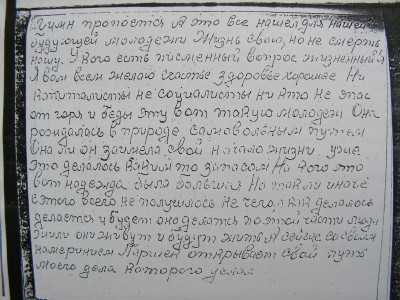 Гимн пропоется А это все нашел для нашей
будующей молодежи Жизнь свою, но не смерть
нашу. У кого есть писменный вопрос жизненный
Я вам всем желаю счастье здоровье хорошее Ни
капиталисты не социалисты ни кто не спас
от горя и беды эту вот такую молодежь Она
рождалась в природе самовольным путьем
Она ли он заимела свой начало жизни. уже
это делалось каким то запасом На кого это
вот надежда была большая На так ли иначе
с этого всего не получилось Не чего, как делалось
делается и будет оно делатся по этой части люди
жили они живут и будут жить А сейчас со своим
намерением Паршек открывает свой путь
моего дела которого делал